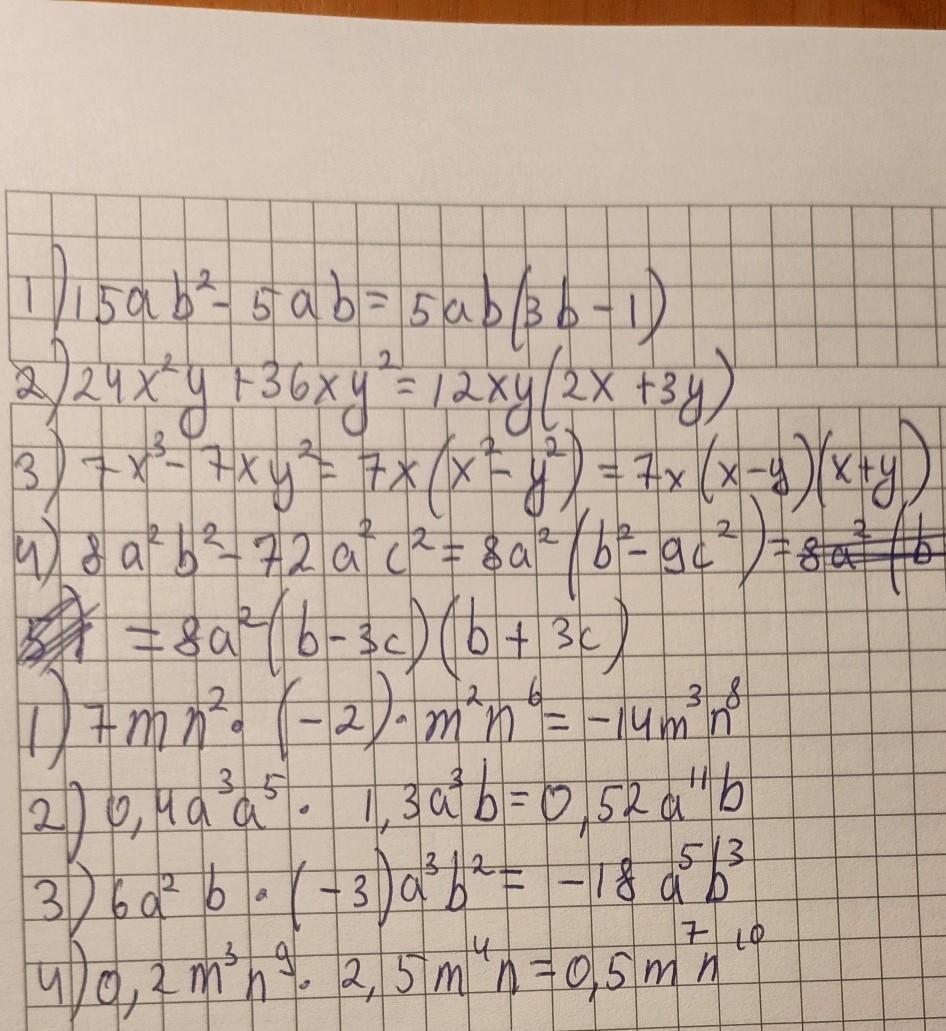 1) 15ab² - 5ab = 5ab(3b - 1)
2) 24x²y + 36xy² = 12xy(2x + 3y)
3) 7x³ - 7xy² = 7x(x² - y²) = 7x(x - y)(x + y)
4) 8a²b² - 72a²c² = 8a²(b² - 9c²) = 8a²(b
= 8a²(b - 3c)(b + 3c)
1) 7mn² · (-2) · m²n⁶ = -14m³n⁸
2) 0,4a³a⁵ · 1,3a³b = 0,52a¹¹b
3) 6a²b · (-3)a³b² = -18a⁵b³
4) 0,2m³n⁹ · 2,5m⁴n = 0,5m⁷n¹⁰